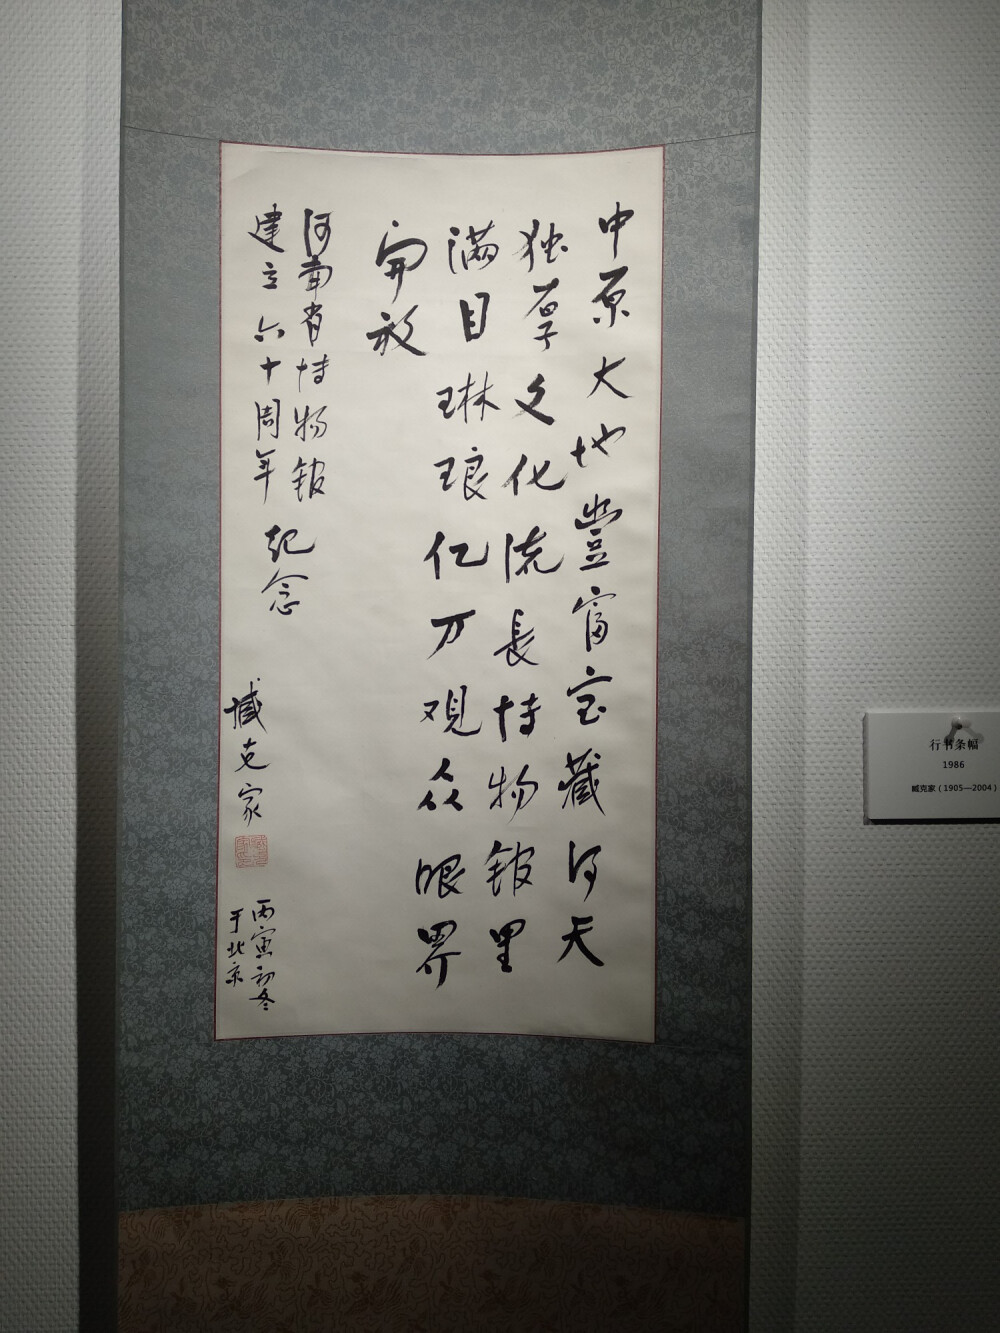 中原大地豊富宝藏得天
独厚文化流長博物馆里
满目琳琅亿万观众眼界
開放
河南省博物馆
建立六十周年纪念
臧克家
丙寅初冬
于北京
行书条幅
1986
臧克家（1905—2004）